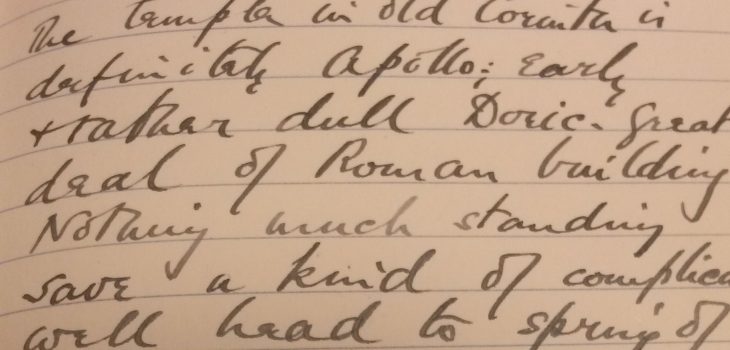 The temple in old Corinth is
definitely Apollo; Early
+ rather dull Doric. Great
deal of Roman building
Nothing much standing
save a kind of complica
well head to spring of